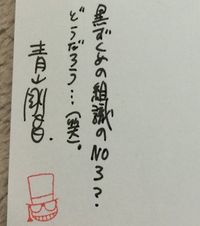 黒ずくめの組織のNO3?
どうだろう…(笑)。
青山剛昌.